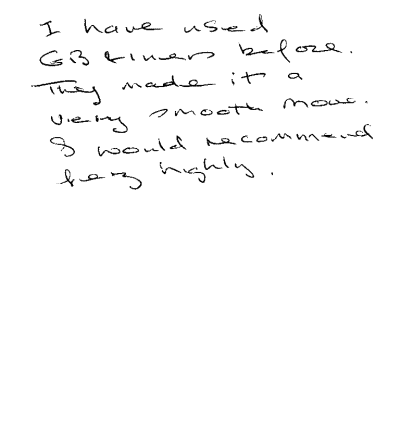 I have used
GB before.
They made it a
very smooth move.
I would recommend
very highly.